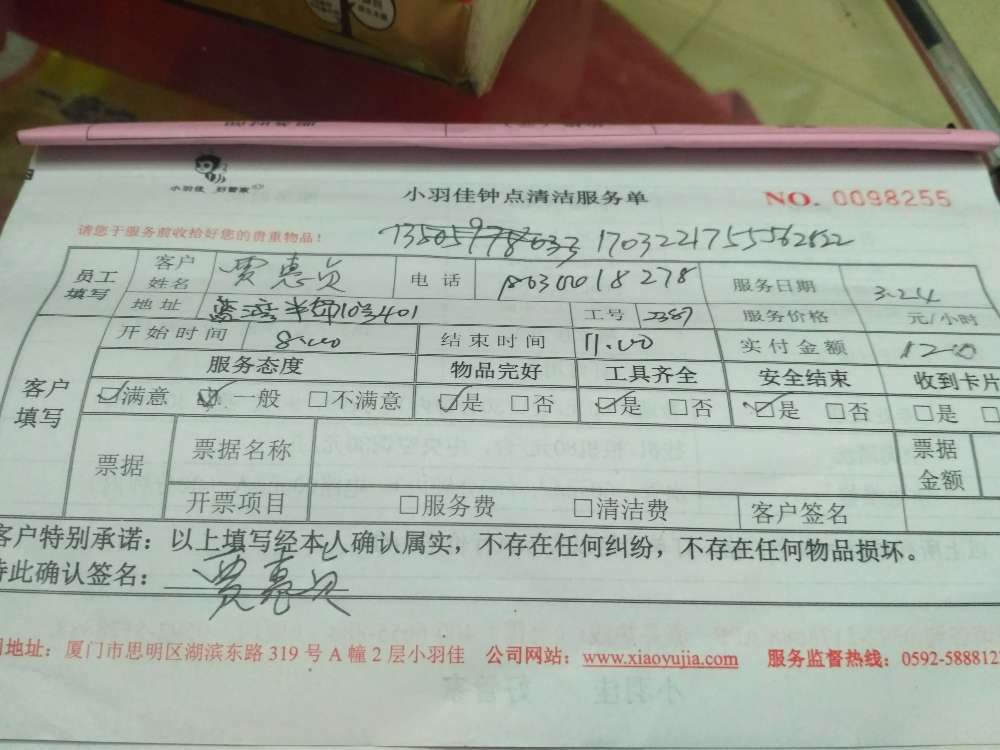 小羽佳 好管家
小羽佳钟点清洁服务单 NO. 0098255
请您于服务前收拾好您的贵重物品！
员工填写 客户姓名 贾惠贞 电话 服务日期 3.24
地址 10号401 工号 服务价格 元/小时
客户填写 开始时间 8.00 结束时间 11.00 实付金额 120
服务态度 物品完好 工具齐全 安全结束 收到卡片
☑满意 ☑一般 □不满意 ☑是 □否 ☑是 □否 ☑是 □否 □是
票据 票据名称 票据金额
开票项目 □服务费 □清洁费 客户签名
客户特别承诺：以上填写经本人确认属实，不存在任何纠纷，不存在任何物品损坏。
特此确认签名：贾惠贞
地址：厦门市思明区湖滨东路 319 号 A 幢 2 层小羽佳 公司网站：www.xiaoyujia.com 服务监督热线：0592-588812